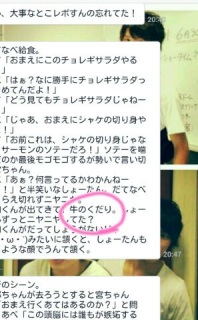 、大事なとこレポすんの忘れてた！
20:45
なべ給食。
「おまえにこのチョレギサラダやる
」
「はぁ？なに勝手にチョレギサラダっ
めてんだよ！」
「どう見てもチョレギサラダじゃねー
」
「じゃあ、おまえにシャケの切り身や
」
「お前これは、シャケの切り身じゃな
サーモンのソテーだろ！」ソテーを噛
だのか最後モゴモゴするが勢いで言い切
宮ちゃん。
「あぁ？何言ってるかわかんねー
！」と半笑いなしょーたん。だてなべ
らえ切れずニヤニヤ
くんが出てきて、牛のくだり。しょー
ずっとニヤニヤしてた？
くんがだってしょうがない
・ω・`)みたいに頷くと、しょーたんも
ような顔でうんて頷く。
20:47
のシーン。
宮ちゃんが去ろうとすると宮ちゃん
「おまえ行くあてはあるのか？」と問
あべ「この頭脳には誰もが嫉妬する